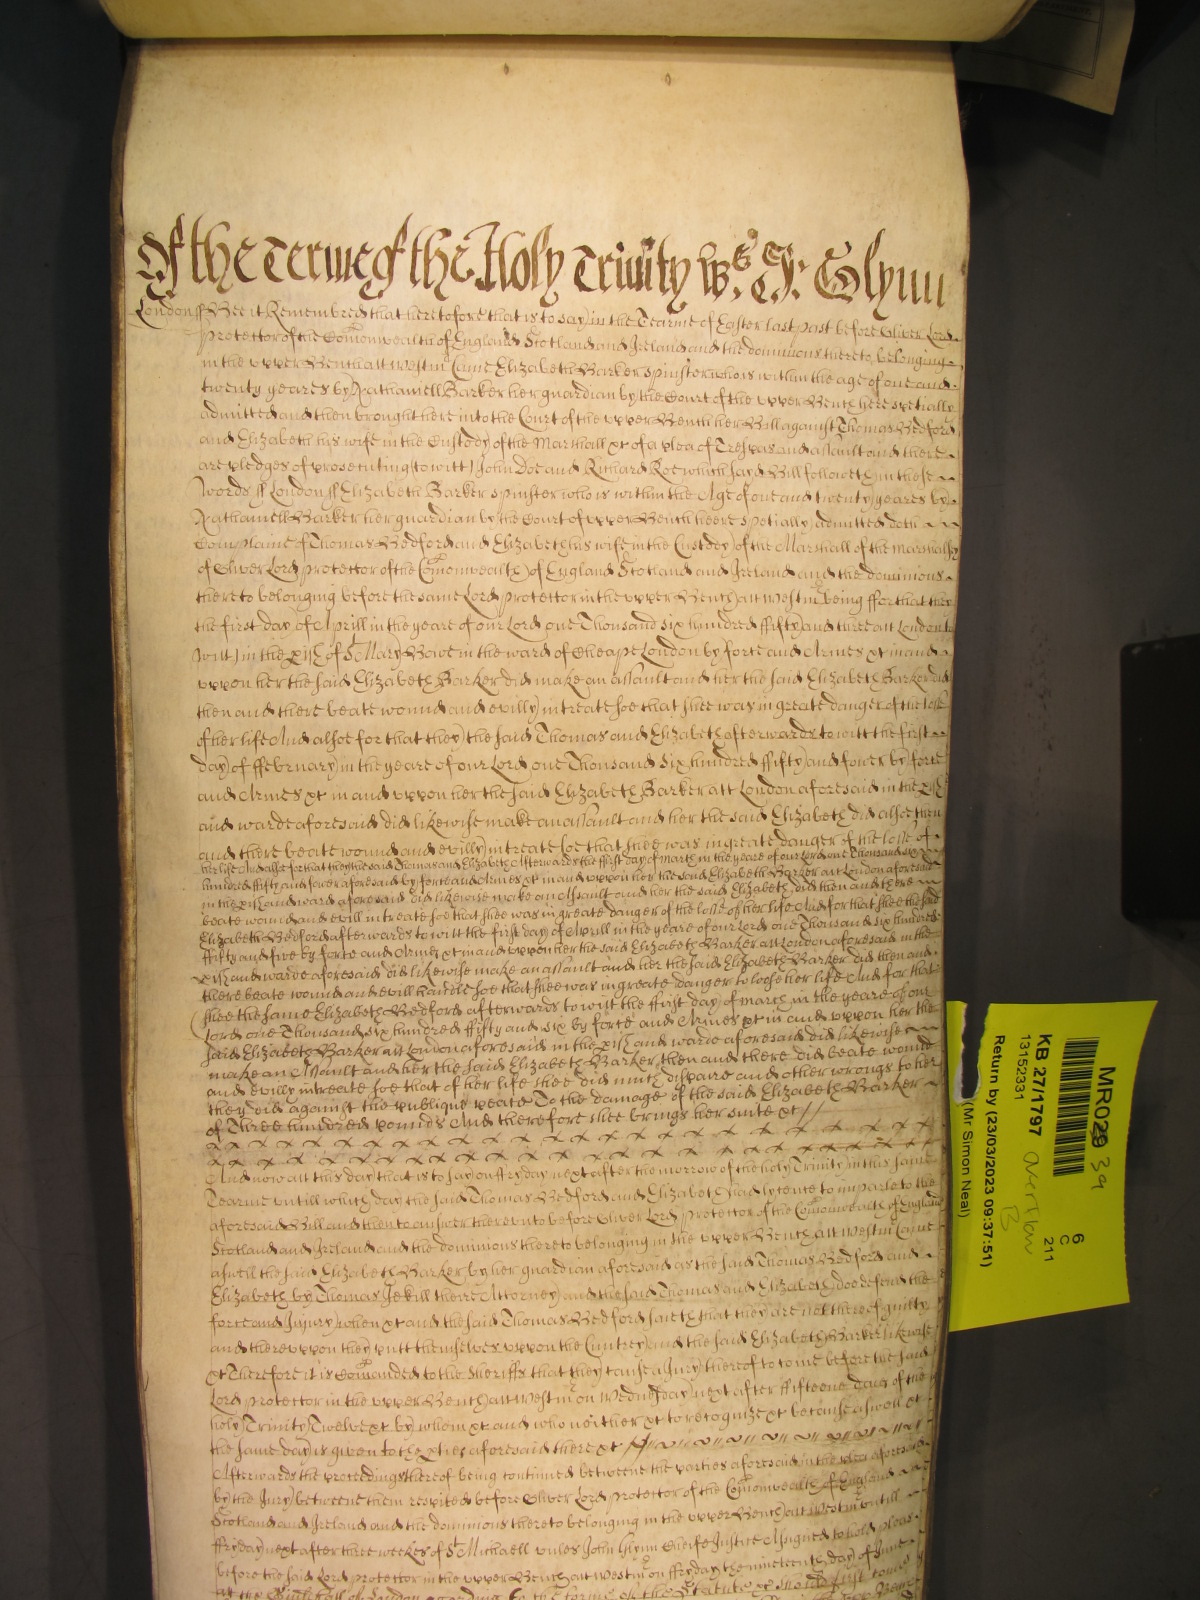 Of the Terme of the Holy Trinity Ws. Jr. Glynn
London ss Bee it Remembred that heretofore that is to say in the Tearme of Easter last past before Oliver Lord
Protector of the Comonwealth of England Scotland and Ireland and the dominions thereto belonging
in the upper Bench att Westm Came Elizabeth Barker spinster who is within the age of one and
twenty yeares by Nathaniell Barker her guardian by the Court of the upper Bench here specially
admitted and then brought here into the Court of the upper Bench her Bill against Thomas Bedford
and Elizabeth his wife in the Custody of the Marshall &c of a plea of Trespas and assault and there
are pledges of prosecuting to witt John Doe and Richard Roe which said Bill followeth in these
words ss London ss Elizabeth Barker spinster who is within the Age of one and twenty yeares by
Nathaniell Barker her guardian by the Court of upper Bench heere specially admitted doth
Complaine of Thomas Bedford and Elizabeth his wife in the Custody of the Marshall of the Marshallsy
of Oliver Lord protector of the Comonwealth of England Scotland and Ireland and the dominions
thereto belonging before the same Lord protector in the upper Bench att Westm being ffor that they
the first day of Aprill in the yeare of our Lord one Thousand six hundred ffifty and three att London to
witt in the pish of St Mary Bowe in the ward of Cheape London by force and Armes &c in and
uppon her the said Elizabeth Barker did make an assault and her the said Elizabeth Barker did
then and there beate wound and evilly intreate soe that shee was in greate danger of the losse
of her life And alsoe for that they the said Thomas and Elizabeth afterwards to witt the first
day of ffebruary in the yeare of our Lord one Thousand six hundred ffifty and fower by force
and Armes &c in and uppon her the said Elizabeth Barker att London aforesaid in the pish
and warde aforesaid did likewise make an assault and her the said Elizabeth did alsoe then
and there beate wound and evilly intreate soe that shee was in greate danger of the losse of
her life And alsoe for that they the said Thomas and Elizabeth Afterwards the ffirst day of March in the yeare of our Lord one Thousand six
hundred ffifty and fower aforesaid by force and Armes &c in and uppon her the said Elizabeth Barker att London aforesaid
in the pish and ward aforesaid did likewise make an Assault and her the said Elizabeth did then and there
beate wound and evill intreate soe that shee was in greate danger of the losse of her life And for that shee the said
Elizabeth Bedford afterwards to witt the first day of Aprill in the yeare of our Lord one Thousand six hundred
ffifty and five by force and Armes &c in and uppon her the said Elizabeth Barker att London aforesaid in the
pish and warde aforesaid did likewise make an assault and her the said Elizabeth Barker did then and
there beate wound and evill soe that shee was in greate danger to loose her life And for that
shee the same Elizabeth Bedford afterwards to witt the ffirst day of March in the yeare of our
Lord one Thousand six hundred ffifty and six by force and Armes &c in and uppon her the
said Elizabeth Barker att London aforesaid in the pish and warde aforesaid did likewise
make an Assault and her the said Elizabeth Barker then and there did beate wound
and evilly intreate soe that of her life shee did much dispare and other wrongs to her
they did against the publique peace To the damage of the said Elizabeth Barker
of Three hundred pounds And therefore shee brings her suite &c //
And now att this day that is to say on ffryday next after the morrow of the holy Trinity in this same
Tearme untill which day the said Thomas Bedford and Elizabeth had lycence to imparle to the
aforesaid Bill and then to answer thereunto before Oliver Lord protector of the Comonwealth of England
Scotland and Ireland and the dominions thereto belonging in the upper Bench att Westm Came
aswell the said Elizabeth Barker by her guardian aforesaid as the said Thomas Bedford and
Elizabeth by Thomas Jekill theire Attorney and the said Thomas and Elizabeth doe defend the
force and Injury when &c and the said Thomas Bedford saieth that they are not thereof guilty
and thereuppon they putt themselves uppon the Cuntrey and the said Elizabeth Barker likewise
&c Therefore it is Comanded to the Sheriffs that they cause a Jury thereof to come before the said
Lord protector in the upper Bench att Westm on Wednesday next after ffifteene dayes of the
holy Trinity Twelve &c by whom &c and who neither &c to recognize &c because aswell &c
the same day is given to the pties aforesaid there &c
Afterwards the proceedings thereof being continued betweene the parties aforesaid in the plea aforesaid
by the Jury betweene them respited before Oliver Lord protector of the Comonwealth of England
Scotland and Ireland and the dominions thereto belonging in the upper Bench att Westm untill
ffryday next after three weekes of St Michaell unles John Glynn Cheife Justice Assigned to hold pleas
before the said Lord protector in the upper Bench att Westm on ffryday the nineteenth day of June
att the Guildhall of London according to the forme of the Statute &c should first come
MR029 39
6
C
211
KB 27/1797
overflow
B
13152331
Return by (23/03/2023 09:37:51)
(Mr Simon Neal)